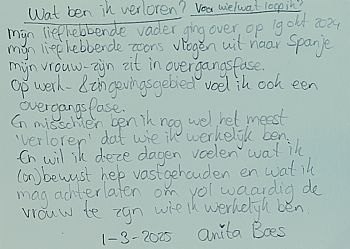 Wat ben ik verloren? Voor wie/wat loop ik?
mijn liefhebbende vader ging over op 19 okt 2024
mijn liefhebbende zoons vlogen uit naar Spanje
mijn vrouw-zijn zit in overgangsfase.
Op werk- & zingevingsgebied voel ik ook een
overgangsfase.
En misschien ben ik nog wel het meest
'verloren' dat wie ik werkelijk ben.
En wil ik deze dagen voelen wat ik
(on)bewust heb vastgehouden en wat ik
mag achterlaten om volwaardig de
vrouw te zijn wie ik werkelijk ben.
1-3-2025 Anita Boes